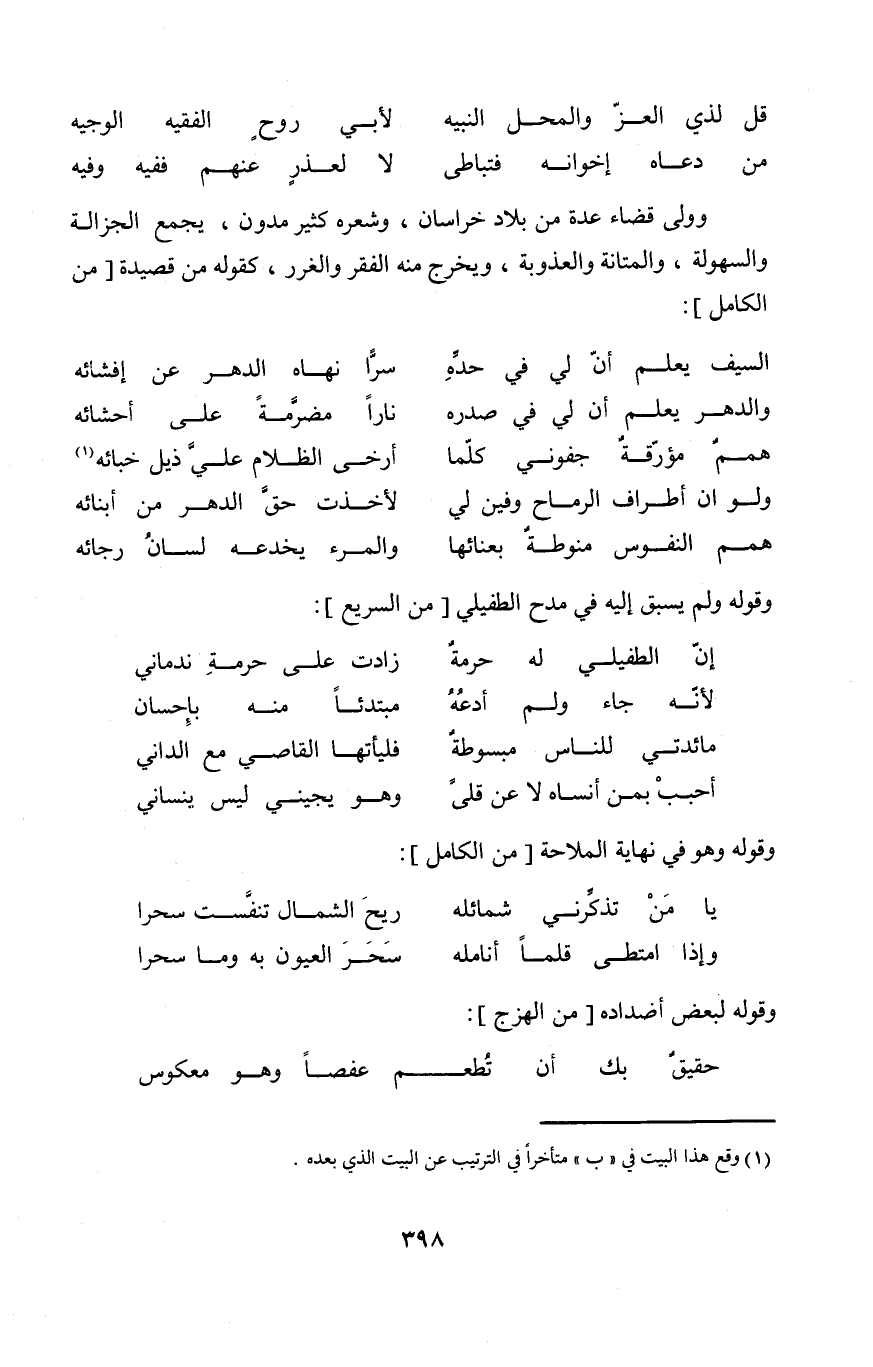 قل لذي العزّ والمحل النبيه لأبي روحٍ الفقيه الوجيه
من دعاه إخوانه فتباطى لا لعذرٍ عنهم ففيه وفيه
وولى قضاء عدة من بلاد خراسان ، وشعره كثير مدون ، يجمع الجزالة
والسهولة ، والمتانة والعذوبة ، ويخرج منه الفقر والغرر ، كقوله من قصيدة [ من
الكامل ] :
السيف يعلم أنّ لي في حدِّهِ سرًّا نهاه الدهر عن إفشائه
والدهر يعلم أن لي في صدره ناراً مضرَّمةً على أحشائه
هممٌ مؤرّقةٌ جفوني كلّما أرخى الظلام عليَّ ذيل خبائه(١)
ولو ان أطراف الرماح وفين لي لأخذت حقَّ الدهر من أبنائه
همم النفوس منوطةٌ بعنائها والمرء يخدعه لسانُ رجائه
وقوله ولم يسبق إليه في مدح الطفيلي [ من السريع ] :
إنّ الطفيلي له حرمةٌ زادت على حرمةِ ندماني
لأنّه جاء ولم أدعُهُ مبتدئاً منه بإحسان
مائدتي للناس مبسوطةٌ فليأتها القاصي مع الداني
أحببْ بمن أنساه لا عن قلىً وهو يجيني ليس ينساني
وقوله وهو في نهاية الملاحة [ من الكامل ] :
يا مَنْ تذكِّرني شمائله ريحَ الشمال تنفَّست سحرا
وإذا امتطى قلماً أنامله سَحَرَ العيون به وما سحرا
وقوله لبعض أضداده [ من الهزج ] :
حقيقٌ بك أن تُطعم عفصاً وهو معكوس
(١) وقع هذا البيت في « ب » متأخراً في الترتيب عن البيت الذي بعده .
٣٩٨